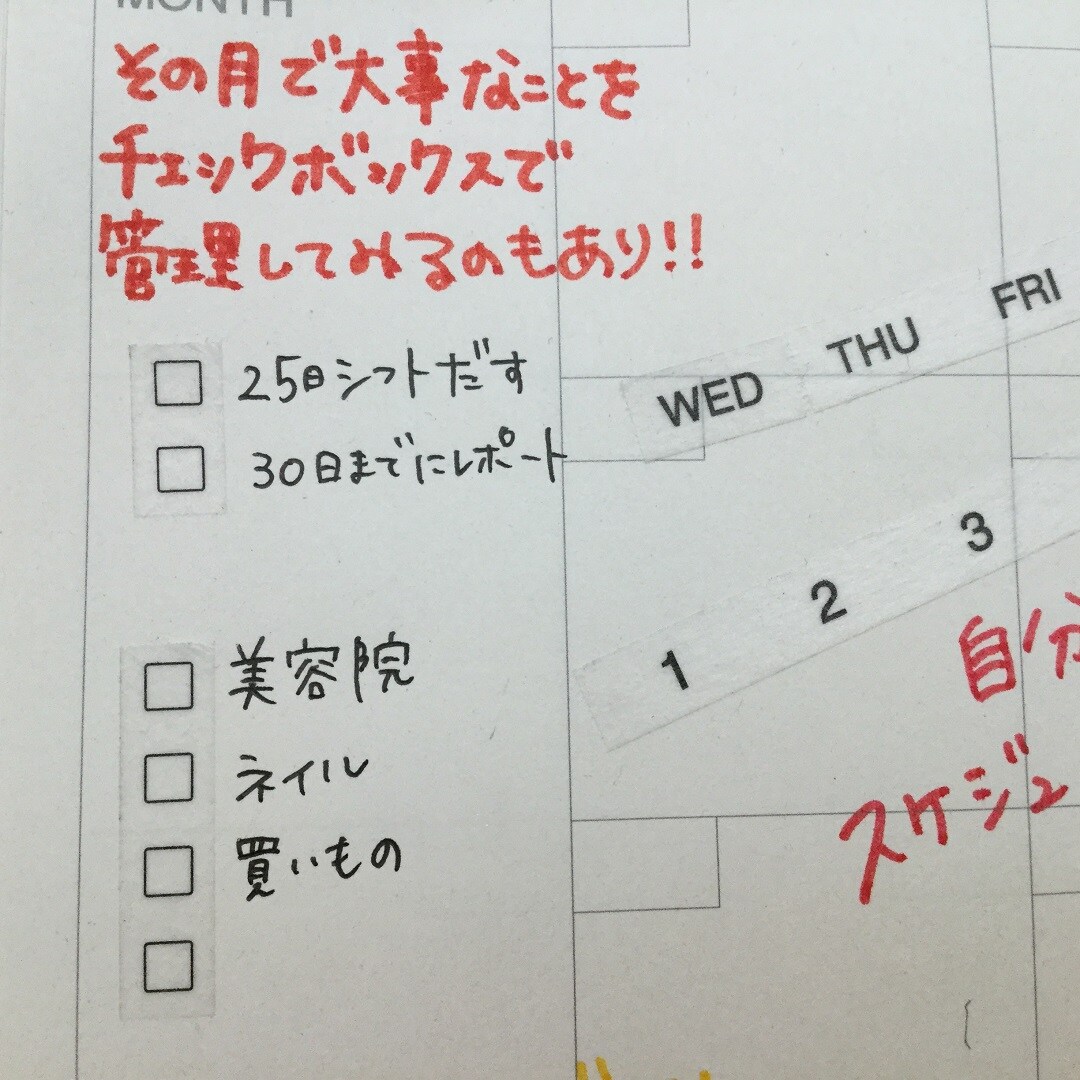 MONTH
その月で大事なことを
チェックボックスで
管理してみるのもあり!!
25日シフトだす
30日までにレポート
美容院
ネイル
買いもの
WED THU FRI
1 2 3
自分
スケジュ